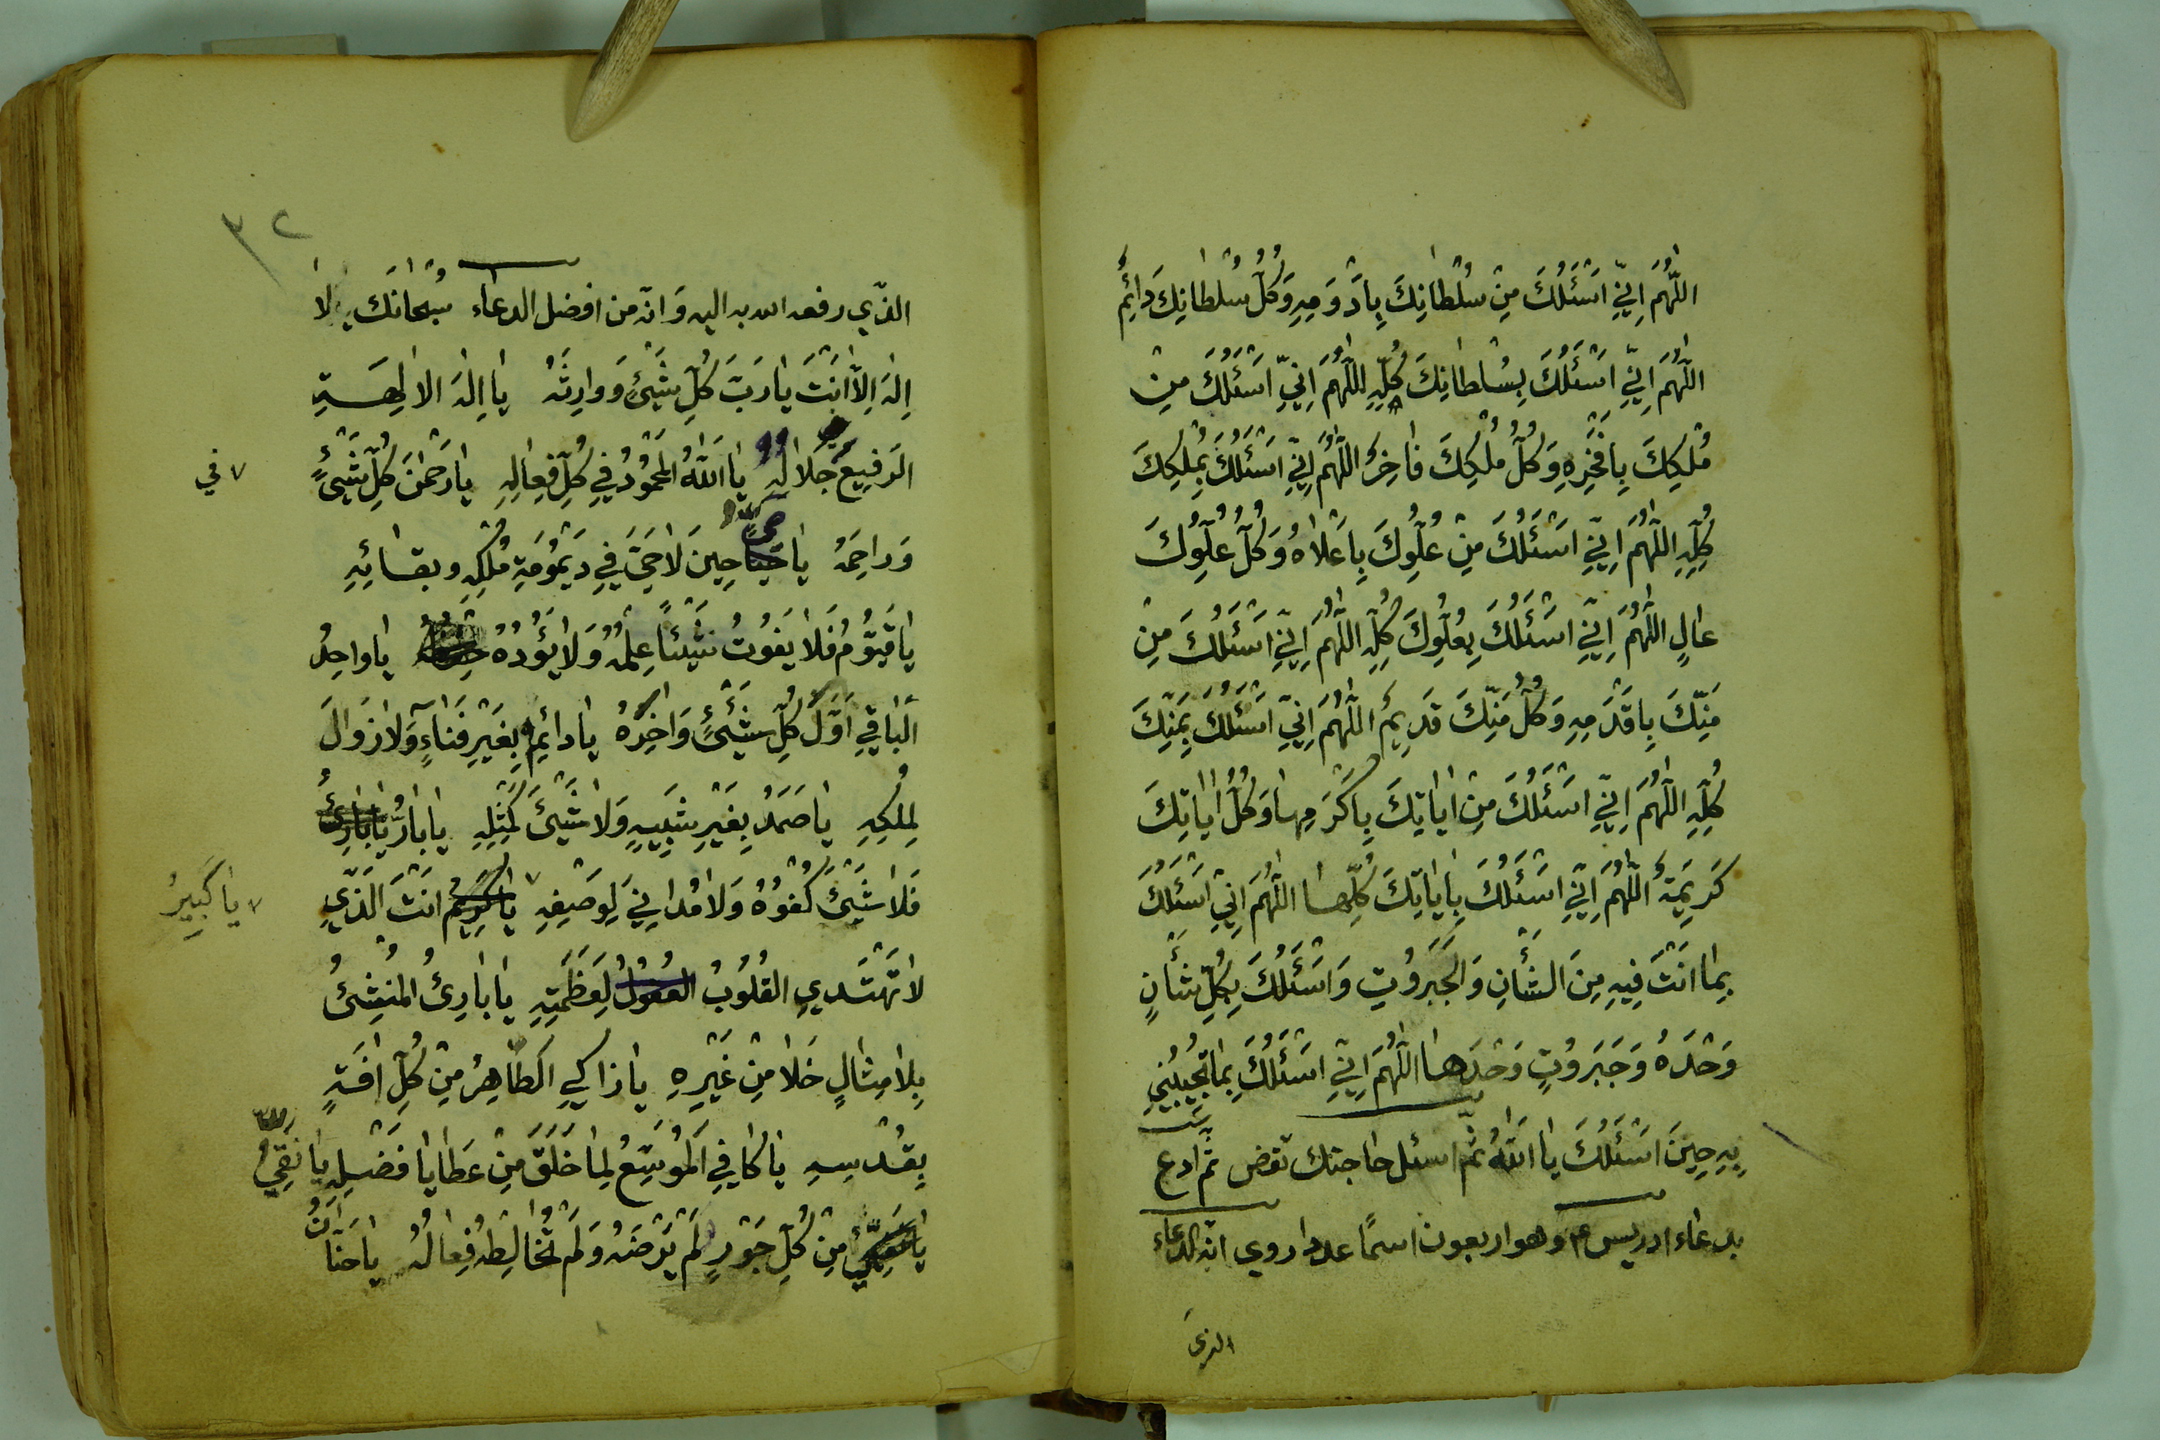 اللّٰهُمَّ اِنّيِ اَسْئَلُكَ مِنْ سُلْطانِكَ بِاَدْوَمِهِ وَكُلُّ سُلْطانِكَ دَائِمٌ
اللّٰهُمَّ اِنّيِ اَسْئَلُكَ بِسُلْطانِكَ كُلِّهِ اللّٰهُمَّ اِنّيِ اَسْئَلُكَ مِنْ
مُلْكِكَ بِاَفْخَرِهِ وَكُلُّ مُلْكِكَ فاخِرٌ اللّٰهُمَّ اِنّيِ اَسْئَلُكَ بِمُلْكِكَ
كُلِّهِ اللّٰهُمَّ اِنّيِ اَسْئَلُكَ مِنْ عُلُوِّكَ بِاَعْلاهُ وَكُلُّ عُلُوِّكَ
عالٍ اللّٰهُمَّ اِنّيِ اَسْئَلُكَ بِعُلُوِّكَ كُلِّهِ اللّٰهُمَّ اِنّيِ اَسْئَلُكَ مِنْ
مَنِّكَ بِاَقْدَمِهِ وَكُلُّ مَنِّكَ قَدِيمٌ اللّٰهُمَّ اِنّيِ اَسْئَلُكَ بِمَنِّكَ
كُلِّهِ اللّٰهُمَّ اِنّيِ اَسْئَلُكَ مِنْ اٰياتِكَ بِاَكْرَمِها وَكُلُّ اٰياتِكَ
كَرِيمَةٌ اللّٰهُمَّ اِنّيِ اَسْئَلُكَ بِاٰياتِكَ كُلِّها اللّٰهُمَّ اِنّيِ اَسْئَلُكَ
بِما اَنْتَ فِيهِ مِنَ الشَّأْنِ وَالْجَبَرُوتِ وَاَسْئَلُكَ بِكُلِّ شَأْنٍ
وَحْدَهُ وَجَبَرُوتٍ وَحْدَها اللّٰهُمَّ اِنّيِ اَسْئَلُكَ بِما تُجِيبُنِي
بِهِ حِينَ اَسْئَلُكَ يا اَللّٰهُ ثم اسئل حاجتك تقض ثم ادع
بدعاء ادريس ع وهو اربعون اسمًا عددا روي انه الدعاء
الذي
٣٢
الذّي رفعه الله به اليه وَانه من افضل الدعاء سُبْحانَكَ لا
اِلٰهَ اِلّا اَنْتَ يا رَبَّ كُلِّ شَيْئٍ وَوارِثَهُ يا اِلٰهَ الاٰلِهَةِ
الرَفِيعَ جَلالُهُ يا اَللّٰهُ الْمَحْمُودُ فِي كُلِّ فِعالِهِ يا رَحْمٰنَ كُلِّ شَيْئٍ
٧ في
وَراحِمَهُ يا حَيُّ حِينَ لا حَيَّ فِي دَيْمُومَةِ مُلْكِهِ وبقائِهِ
يا قَيُّومُ فَلا يَفُوتُ شَيْئاً عِلْمُهُ وَلا يَؤُدُهُ يا واحِدُ
الْباقِي اَوَّلَ كُلِّ شَيْئٍ وَاٰخِرَهُ يا دائِم بِغَيْرِ فَناءٍ وَلا زَوالَ
لِمُلْكِهِ يا صَمَدُ بِغَيْرِ شَبِيهٍ وَلا شَيْئَ كَمِثْلِهِ يا بارُّ يا بارِئُ
فَلا شَيْئَ كُفُوُهُ وَلا مُدانِيَ لِوَصْفِهِ ٧ يا كَرِيمُ اَنْتَ الَّذّيِ
٧ يا كَبِيرُ
لا تَهْتَدِي القُلُوبُ العُقُولُ لِعَظَمَتِهِ يا بارِئُ الْمُنْشِئُ
بِلا مِثالٍ خَلا مِنْ غَيْرِهِ يا زاكِي الطّاهِرُ مِنْ كُلِّ اٰفَةٍ
بِقُدْسِهِ يا كافِي الْمُوسِعُ لِما خَلَقَ مِنْ عَطايا فَضْلِهِ يا نَقِيُّ
مِنْ كُلِّ جَوْرٍ لَمْ يَرْضَهُ وَلَمْ تُخالِطْهُ فِعالُهُ يا حَنّانُ